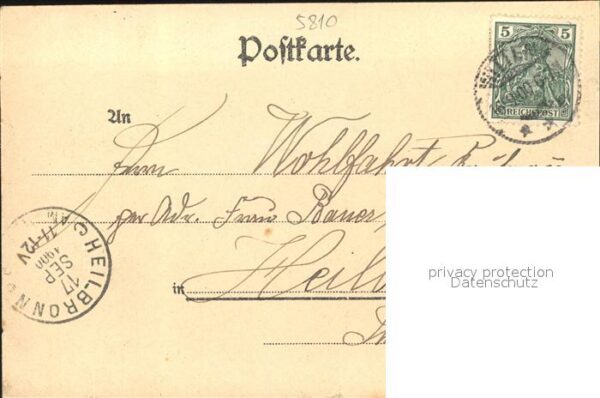 5810
Postkarte.
5 5
REICHSPOST
An
Herrn Wohlfahrt
per Adr. Frau Bauer
in Heil
HEILBRONN
C
17
SEP
1900
11-12V
privacy protection
Datenschutz